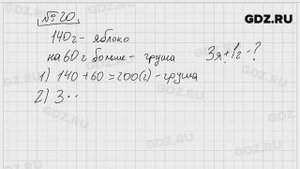 GDZ.RU
№20
140г - яблоко
на 60 г больше - груша
3я + 1г - ?
1) 140 + 60 = 200(г) - груша
2) 3 ··